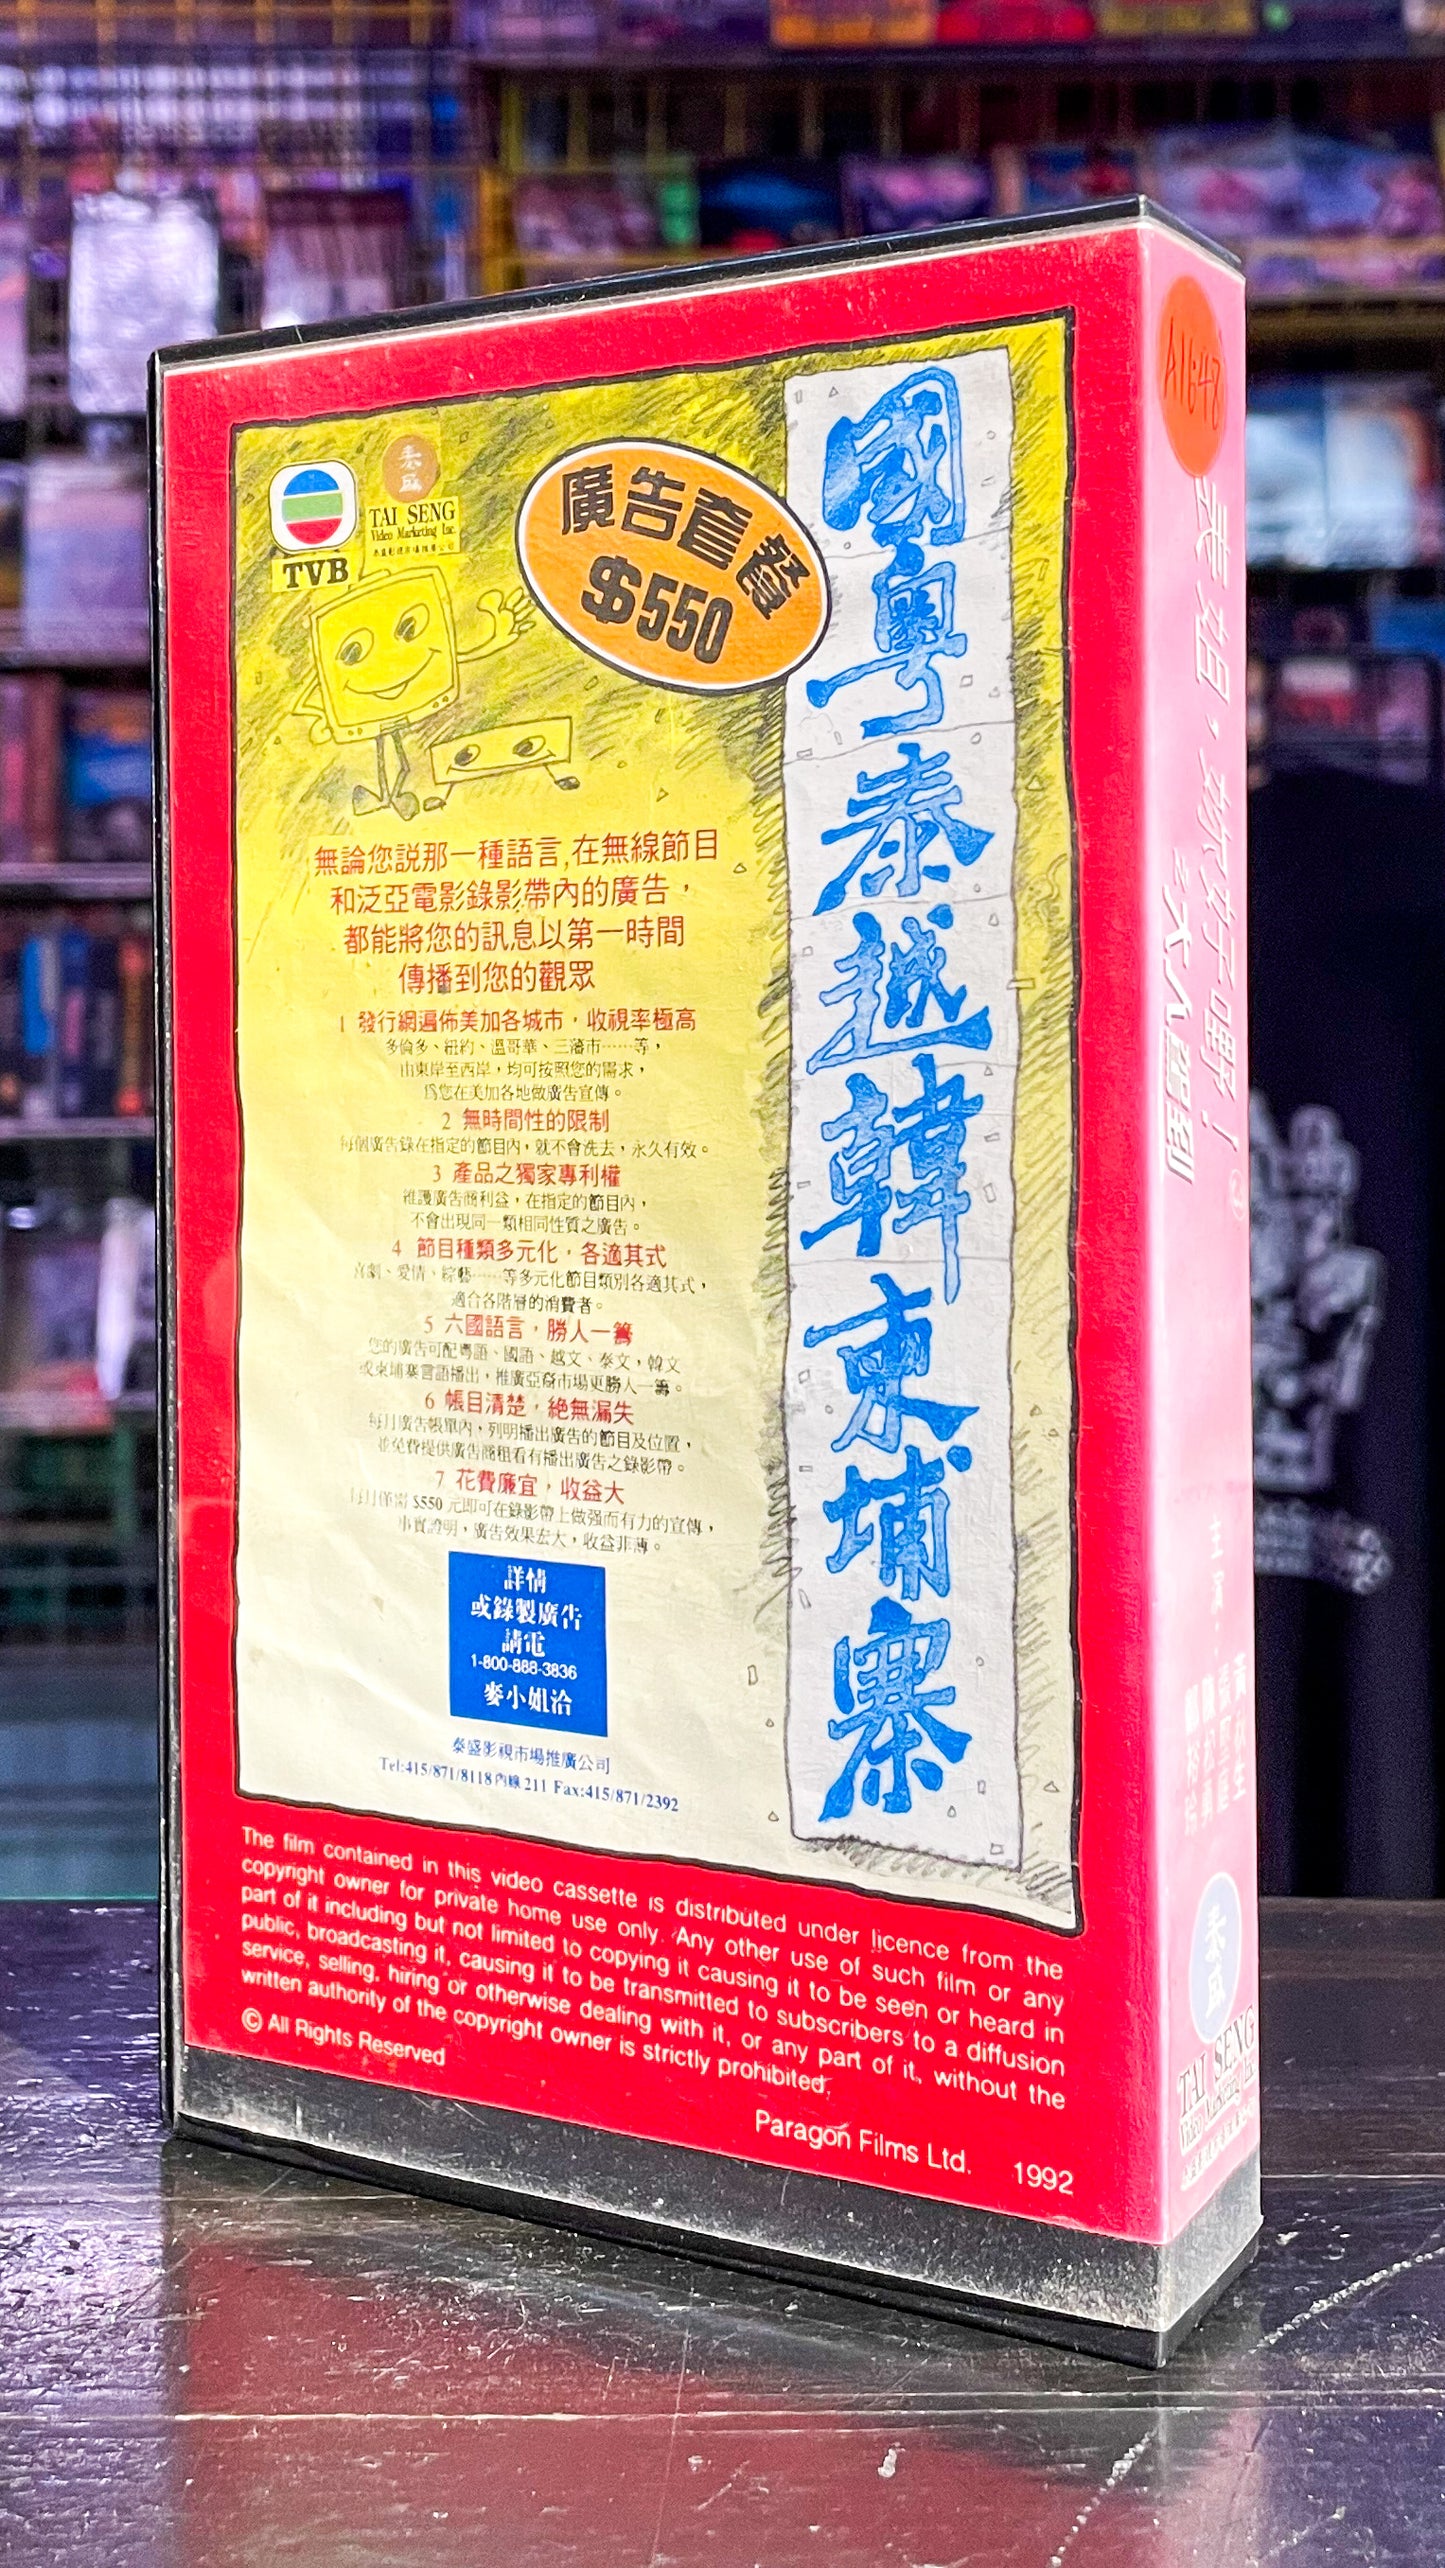 TVB
泰盛
TAI SENG
Video Marketing Inc.
泰盛影視市場推廣公司
廣告套餐
$550
國粵泰越韓柬埔寨
無論您説那一種語言,在無線節目
和泛亞電影錄影帶內的廣告，
都能將您的訊息以第一時間
傳播到您的觀眾
1 發行網遍佈美加各城市，收視率極高
多倫多、紐約、溫哥華、三藩市……等，
由東岸至西岸，均可按照您的需求，
爲您在美加各地做廣告宣傳。
2 無時間性的限制
每個廣告錄在指定的節目內，就不會洗去，永久有效。
3 產品之獨家專利權
維護廣告商利益，在指定的節目內，
不會出現同一類相同性質之廣告。
4 節目種類多元化，各適其式
喜劇、愛情、綜藝……等多元化節目類別各適其式，
適合各階層的消費者。
5 六國語言，勝人一籌
您的廣告可配粵語、國語、越文、泰文，韓文
或柬埔寨言語播出，推廣亞裔市場更勝人一籌。
6 帳目清楚，絕無漏失
每月廣告帳單內，列明播出廣告的節目及位置，
並免費提供廣告商租看有播出廣告之錄影帶。
7 花費廉宜，收益大
每月僅需 $550 元即可在錄影帶上做强而有力的宣傳，
事實證明，廣告效果宏大，收益菲薄。
詳情
或錄製廣告
請電
1-800-888-3836
麥小姐洽
泰盛影視市場推廣公司
Tel:415/871/8118內線 211 Fax:415/871/2392
The film contained in this video cassette is distributed under licence from the
copyright owner for private home use only. Any other use of such film or any
part of it including but not limited to copying it causing it to be seen or heard in
public, broadcasting it, causing it to be transmitted to subscribers to a diffusion
service, selling, hiring or otherwise dealing with it, or any part of it, without the
written authority of the copyright owner is strictly prohibited.
© All Rights Reserved
Paragon Films Ltd. 1992
表姐，妳好嘢！②
之大人駕到
主演
泰盛
TAI SENG
Video Marketing Inc.